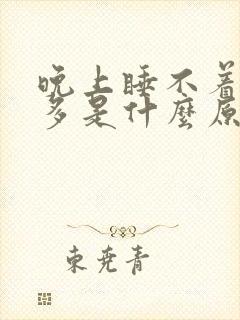 晚上睡不着
多是什麼原
東堯青